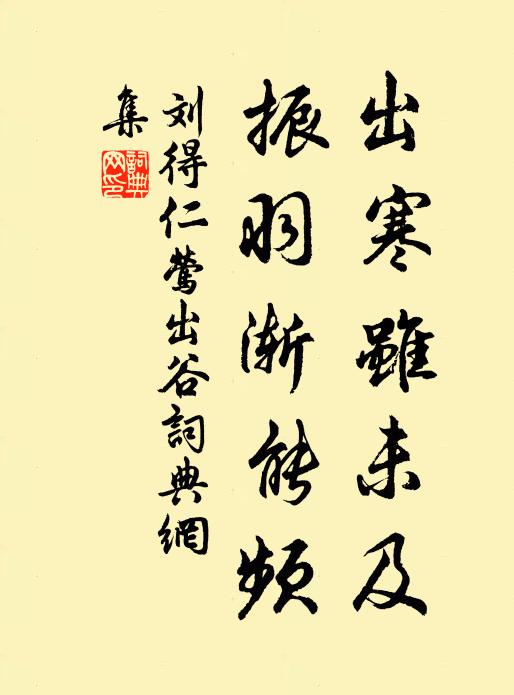 出寒雖未及
振羽漸能頻
刘得仁莺出谷詞典網
集
詞典
网印